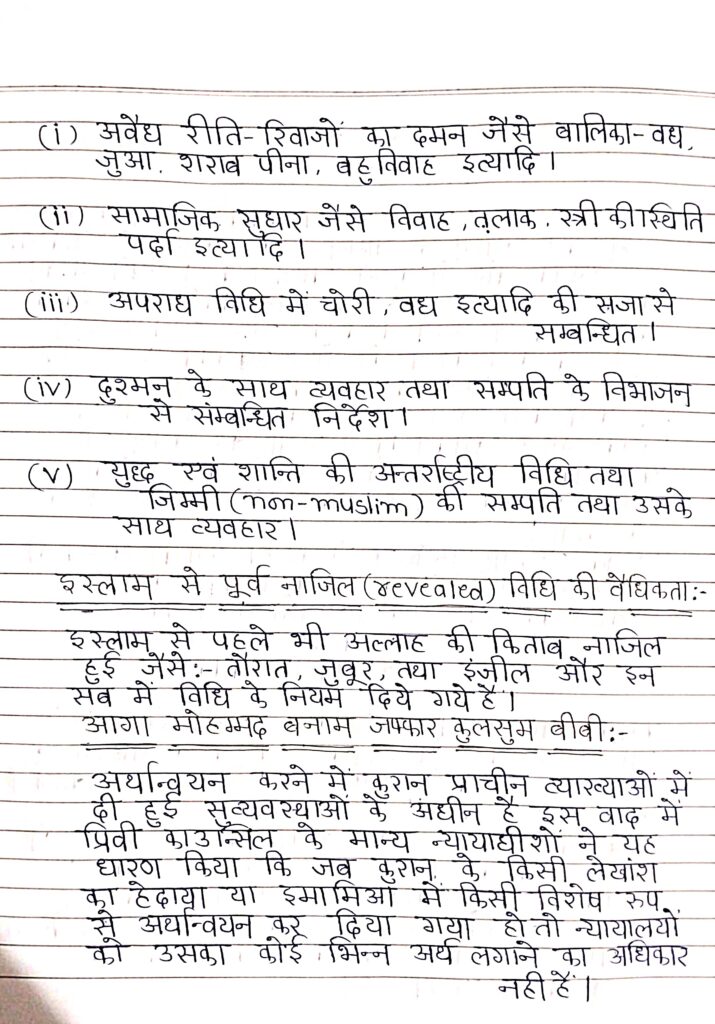 (i) अवैध रीति-रिवाजों का दमन जैसे बालिका-वध,
जुआ, शराब पीना, बहुविवाह इत्यादि।
(ii) सामाजिक सुधार जैसे विवाह, तलाक, स्त्री की स्थिति
पर्दा इत्यादि।
(iii) अपराध विधि में चोरी, वध इत्यादि की सजा से
सम्बन्धित।
(iv) दुश्मन के साथ व्यवहार तथा सम्पति के विभाजन
से संम्बन्धित निर्देश।
(v) युध्द एवं शान्ति की अन्तर्राष्ट्रीय विधि तथा
जिम्मी (non-muslim) की सम्पति तथा उसके
साथ व्यवहार।
इस्लाम से पूर्व नाजिल (revealed) विधि की वैधिकता:-
इस्लाम से पहले भी अल्लाह की किताब नाजिल
हुई जैसे:- तौरात, जुबूर, तथा इंजील और इन
सब में विधि के नियम दिये गये है।
आगा मोहम्मद बनाम जफ्कार कुलसुम बीबी:-
अर्थान्वयन करने में कुरान प्राचीन व्याख्याओं में
दी हुई सुव्यवस्थाओं के अधीन है इस वाद में
प्रिवी काउन्सिल के मान्य न्यायाधीशों ने यह
धारण किया कि जब कुरान के किसी लेखांश
का हेदाया या इमामिआ में किसी विशेष रुप
से अर्थान्वयन कर दिया गया हो तो न्यायालयों
को उसका कोई भिन्न अर्थ लगाने का अधिकार
नही हैं।